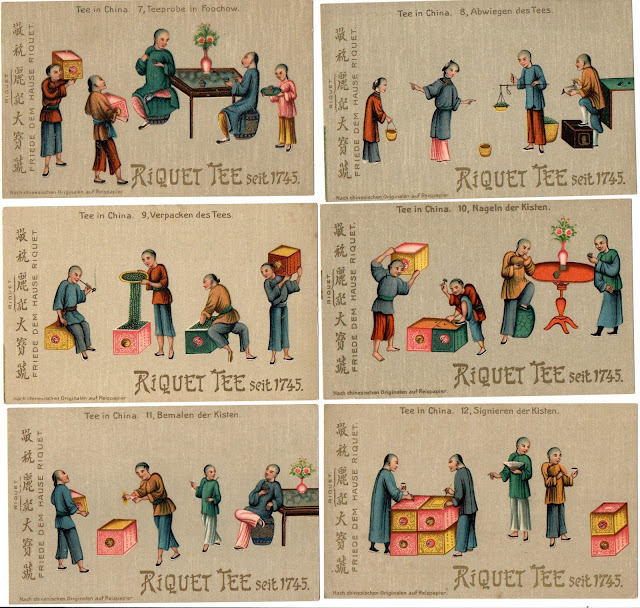 Tee in China. 7, Teeprobe in Foochow.
敬
麗記大寶號
RIQUET
FRIEDE DEM HAUSE RIQUET.
RIQUET TEE seit 1745.
Nach chinesischen Originalen auf Reispapier.
Tee in China. 8, Abwiegen des Tees.
敬
麗記大寶號
RIQUET
FRIEDE DEM HAUSE RIQUET.
RIQUET TEE seit 1745.
Nach chinesischen Originalen auf Reispapier.
Tee in China. 9, Verpacken des Tees.
敬
麗記大寶號
RIQUET
FRIEDE DEM HAUSE RIQUET.
RIQUET TEE seit 1745.
Nach chinesischen Originalen auf Reispapier.
Tee in China. 10, Nageln der Kisten.
敬
麗記大寶號
RIQUET
FRIEDE DEM HAUSE RIQUET.
RIQUET TEE seit 1745.
Nach chinesischen Originalen auf Reispapier.
Tee in China. 11, Bemalen der Kisten.
敬
麗記大寶號
RIQUET
FRIEDE DEM HAUSE RIQUET.
RIQUET TEE seit 1745.
Nach chinesischen Originalen auf Reispapier.
Tee in China. 12, Signieren der Kisten.
敬
麗記大寶號
RIQUET
FRIEDE DEM HAUSE RIQUET.
RIQUET TEE seit 1745.
Nach chinesischen Originalen auf Reispapier.